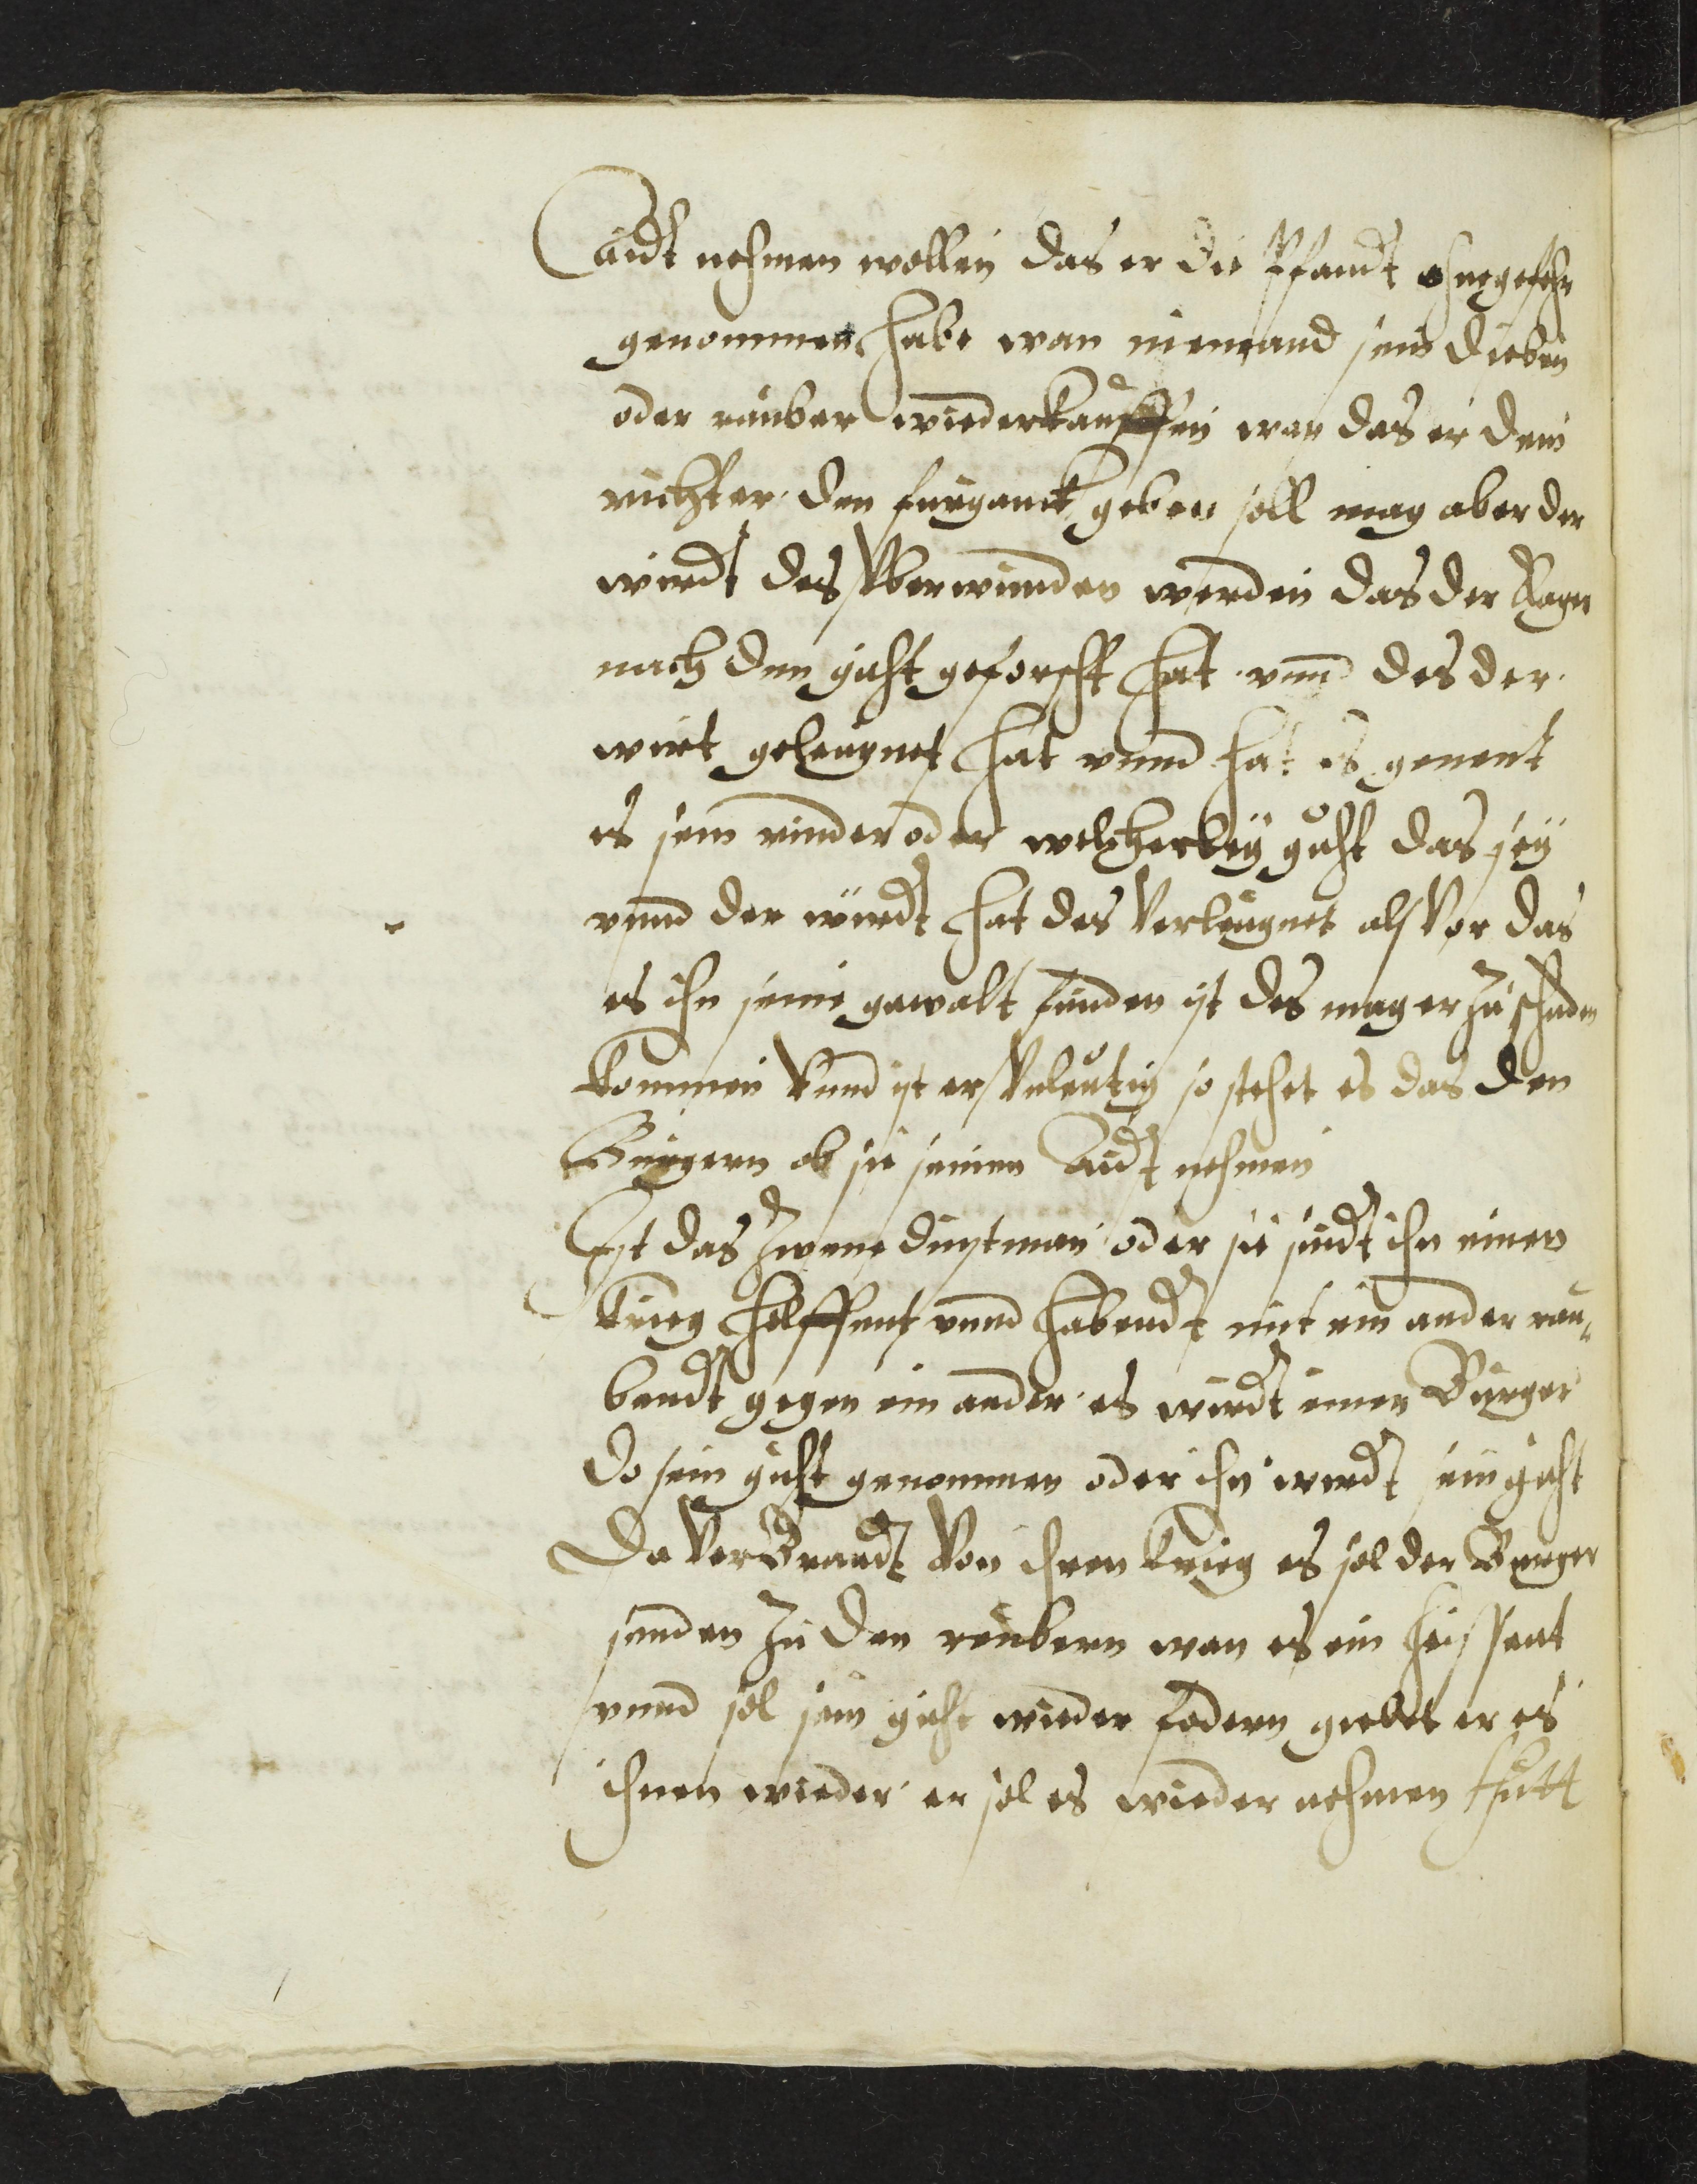 Aidt nehmen wollen das er die Pfandt ohngefehr
genommen habe wan niemand sein dieben
oder rauber wiederkauffen wan das er dem
richter den furganck geben soll mag aber der
wirdt des Vberwunden werden das der klager
nach dem guht geforscht hat vnd des der
wirt geleugnet hat vnnd hat es genent
es sein rinder oder welcherley guht das sey
vnnd der wirdt hat des Verleugnet als Vor das
es ihn seine gewalt funden ist des mag er zu schaden
kommen Vnnd ist er Vnleutig so stehet es das den
Burgern ob sie seinen Aidt nehmen
Ist das zwene dinstman oder sie sindt ihn einen
krieg helffent vnnd habendt mit ein ander rau-
bendt gegen ein ander es wirdt einen Burger
do sein guht genommen oder ihn wirdt sein guht
da VerBrandt Von ihren krieg es sol der Burger
senden zu den raubern wan es ein heissent
vnnd sol sein guht wieder fodern giebet er es
ihnen wieder er sol es wieder nehmen thutt